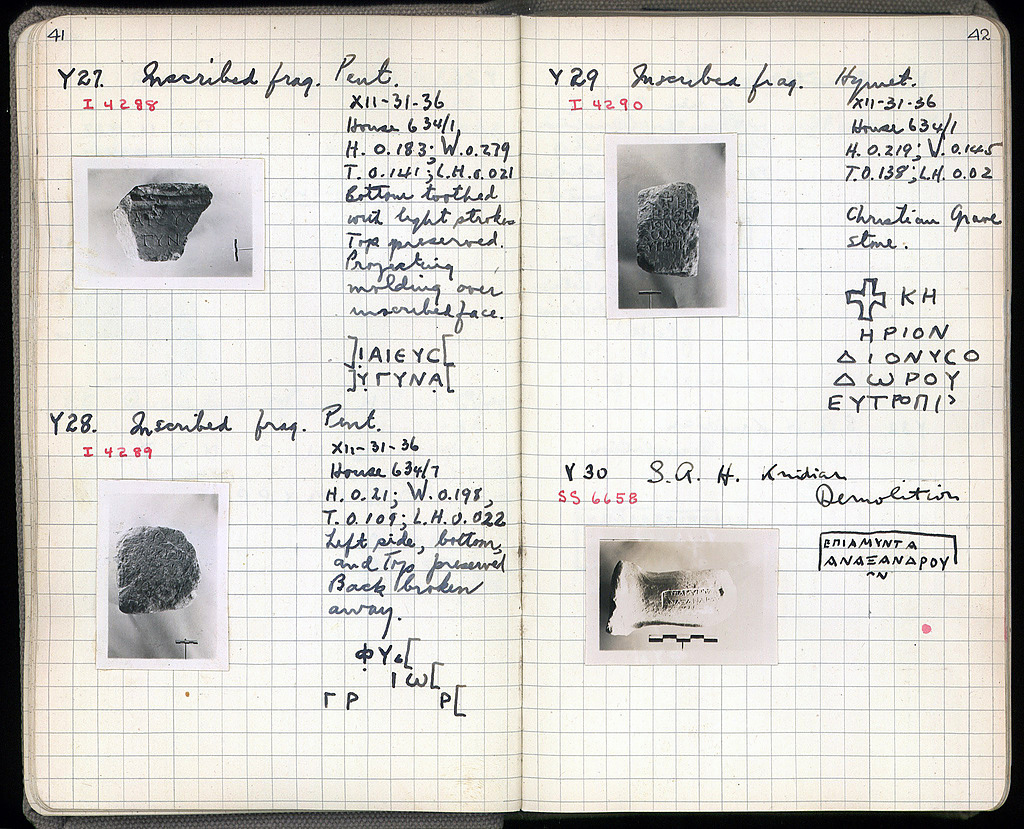 41
Y27. Inscribed frag. Pent.
I 4288
XII-31-36
House 634/1
H. 0.183; W. 0.279
T. 0.141; L.H. 0.021
Bottom toothed
with light strokes
Top preserved.
Projecting
molding over
inscribed face.
]ΙΑΙΕΥϹ[
]ΥΓΥΝΑ[
Y28. Inscribed frag. Pent.
I 4289
XII-31-36
House 634/7
H. 0.21; W. 0.198,
T. 0.109; L.H. 0.022
Left side, bottom,
and Top preserved
Back broken
away.
ΦΥ[
Ιω[
ΓΡ Ρ[
42
Y29 Inscribed frag. Hymet.
I 4290
XII-31-36
House 634/1
H. 0.219; W. 0.145
T. 0.138; L.H. 0.02
Christian Grave
stone.
ΚΗ
ΗΡΙΟΝ
ΔΙΟΝΥϹΟ
ΔωΡΟΥ
ΕΥΤΡΟΠΙ
Y30 S.A.H. Knidian
SS 6658
Demolition
ΕΠΙΑΜΥΝΤΑ
ΑΝΑΞΑΝΔΡΟΥ